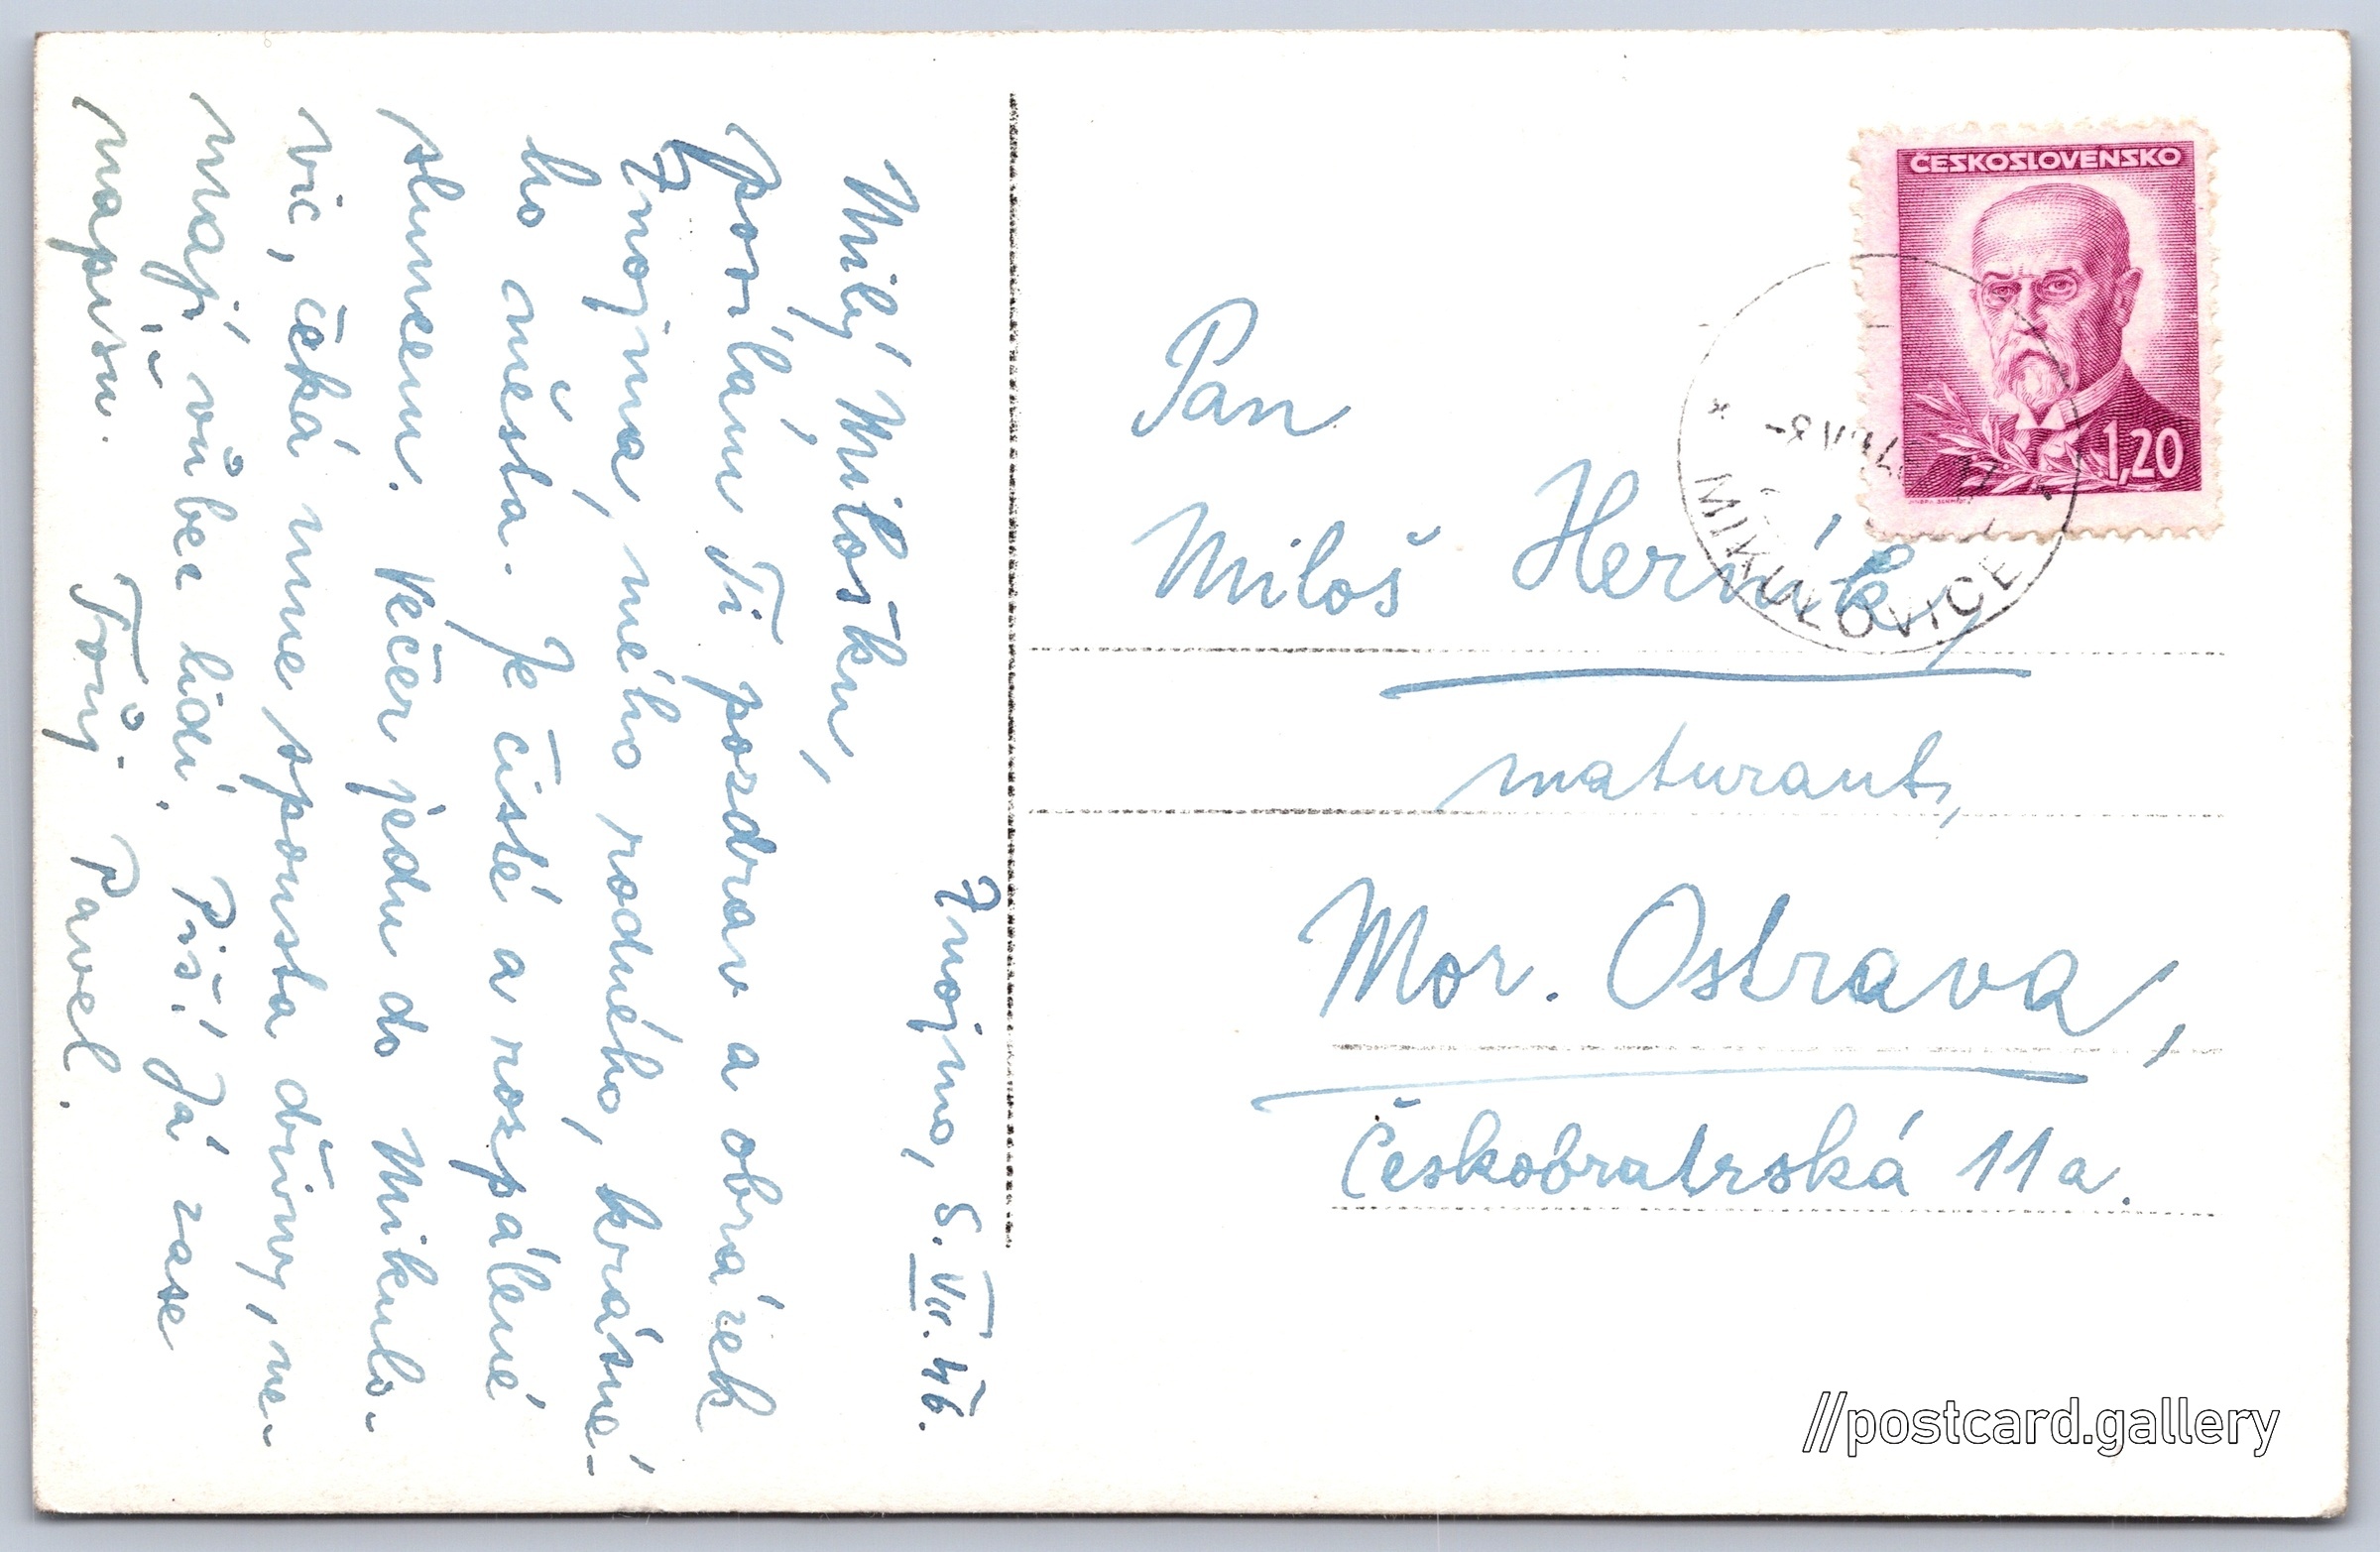 Znojmo, 5.VII.46.
Milý Milošku,
posílám Ti pozdrav a obrázek
Znojma, mého rodného, krásné-
ho města. Je čisté a rozpálené
sluncem. Večer jedu do Mikulo-
vic, čeká mne spousta dřiny, ne-
mají vůbec lidi. Piš! Já zase
napíšu. Tvůj Pavel.
ČESKOSLOVENSKO
1,20
MIKULOVICE
Pan
Miloš Herník,
maturant,
Mor. Ostrava,
Českobratrská 11a.
//postcard.gallery